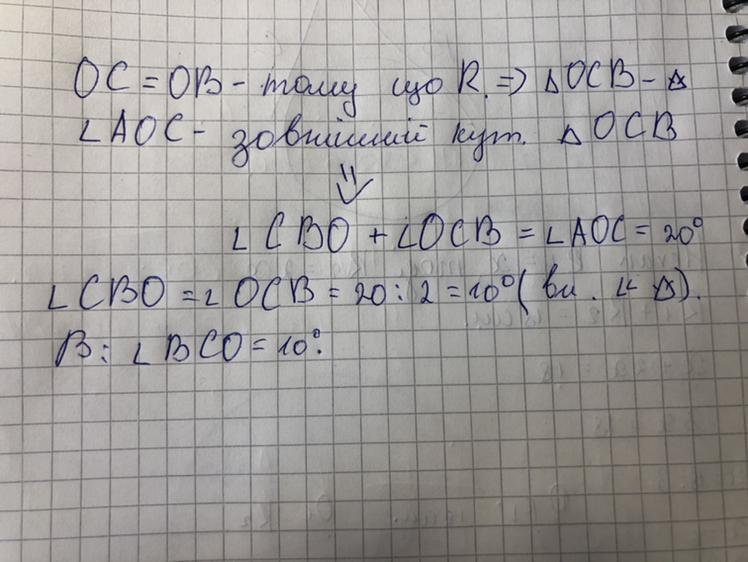 OC = OB - тому що R. => △OCB - △
∠AOC - зовнішній кут. △OCB
∠CBO + ∠OCB = ∠AOC = 20°
∠CBO = ∠OCB = 20 : 2 = 10° (вл. ∠ △).
В: ∠BCO = 10°.